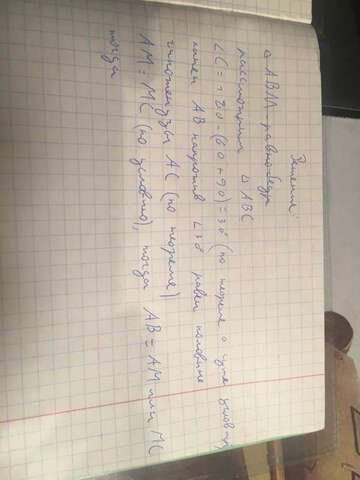 Решение:
△ABM - равнобедр
рассмотрим △ABC
∠C = 180-(60+90)=30 (по теореме о сумме углов тр)
катет AB напротив ∠30 равен половине
гипотенузы AC (по теореме)
AM = MC (по условию), тогда AB = AM или MC
тогда